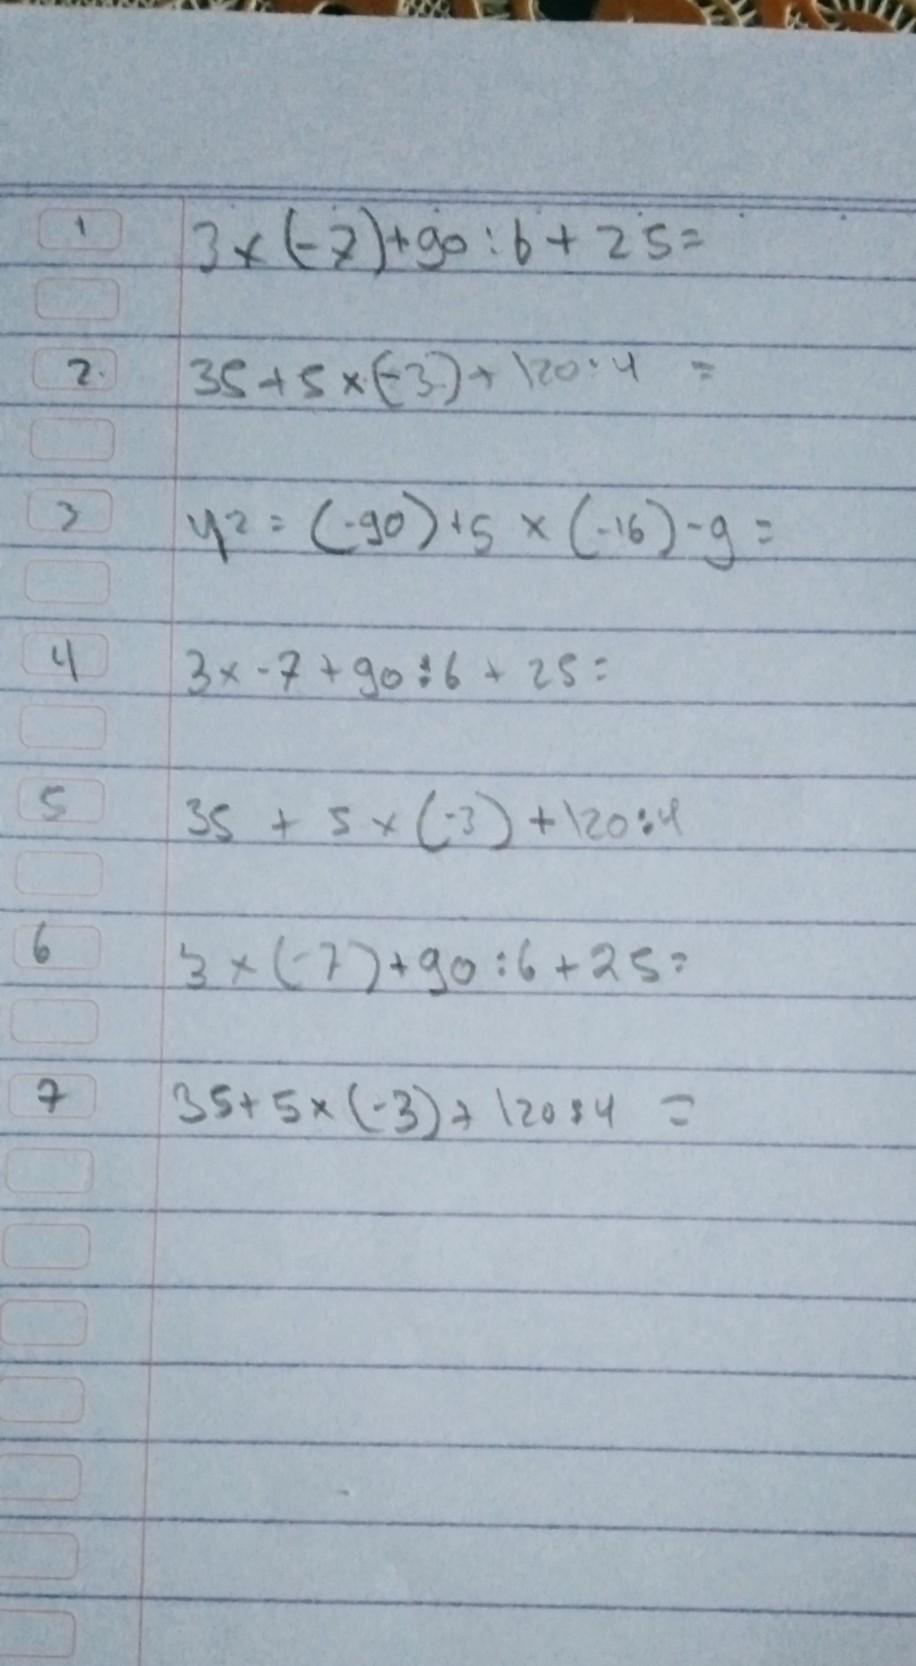 1 3 x (-7) + 90 : 6 + 25 =
2. 35 + 5 x (-3) + 120 : 4 =
3 42 = (-90) + 5 x (-16) - 9 =
4 3 x -7 + 90 : 6 + 25 =
5 35 + 5 x (-3) + 120 : 4
6 3 x (-7) + 90 : 6 + 25 =
7 35 + 5 x (-3) + 120 : 4 =